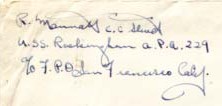 R. Mannatt C.C. Stwd
U.S.S. Rockingham A.P.A. 229
c/o F.P.O. San Francisco Calif.